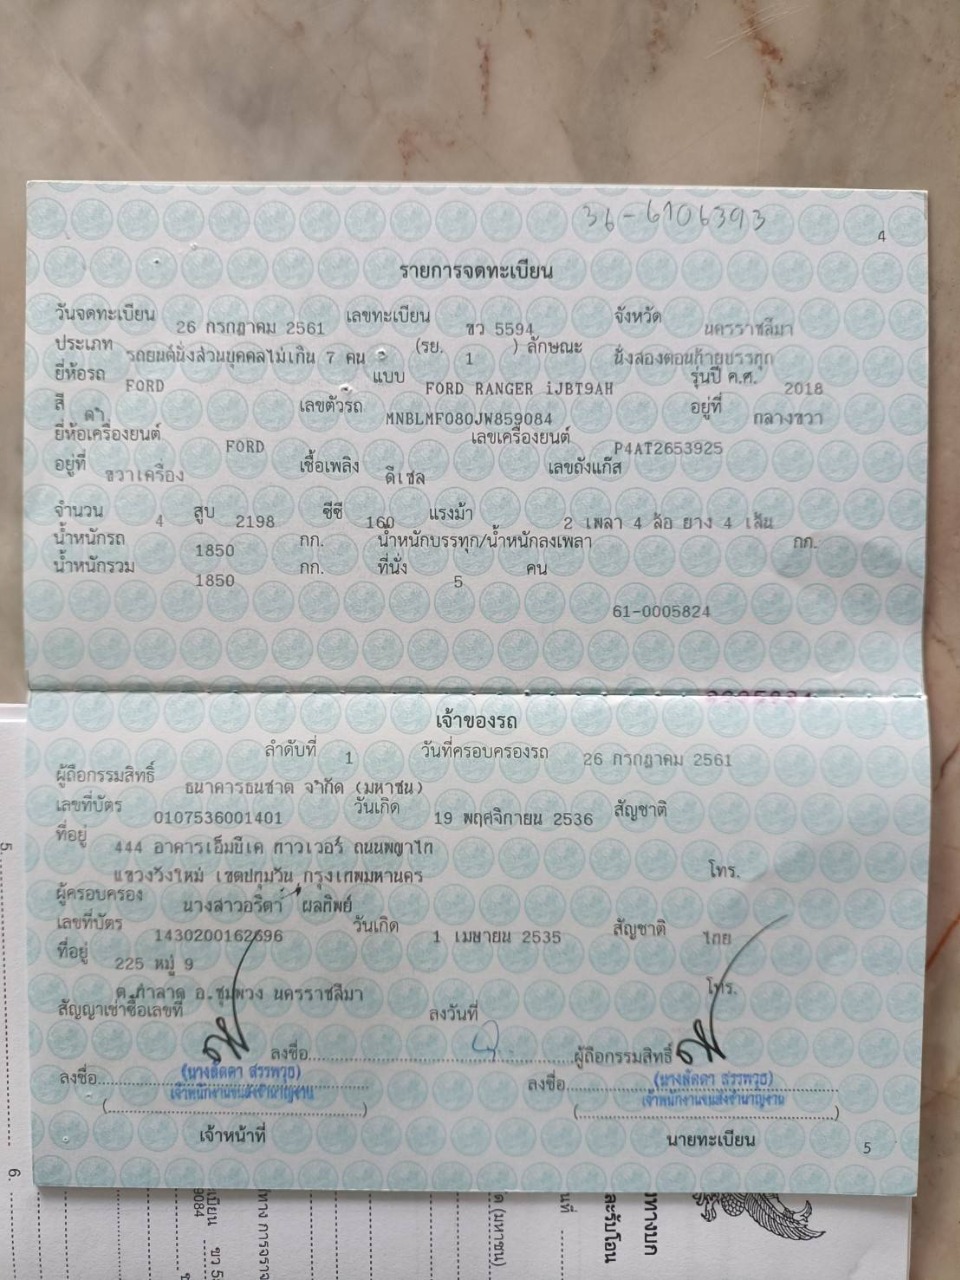 36-6106393
4
รายการจดทะเบียน
วันจดทะเบียน 26 กรกฎาคม 2561 เลขทะเบียน ขว 5594 จังหวัด นครราชสีมา
ประเภท รถยนต์นั่งส่วนบุคคลไม่เกิน 7 คน (รย. 1 ) ลักษณะ นั่งสองตอนท้ายบรรทุก
ยี่ห้อรถ FORD แบบ FORD RANGER iJBT9AH รุ่นปี ค.ศ. 2018
สี ดำ เลขตัวรถ MNBLMF080JW859084 อยู่ที่ กลางขวา
ยี่ห้อเครื่องยนต์ FORD เลขเครื่องยนต์ P4AT2653925
อยู่ที่ ขวาเครื่อง เชื้อเพลิง ดีเซล เลขถังแก๊ส
จำนวน 4 สูบ 2198 ซีซี 160 แรงม้า 2 เพลา 4 ล้อ ยาง 4 เส้น
น้ำหนักรถ 1850 กก. น้ำหนักบรรทุก/น้ำหนักลงเพลา กก.
น้ำหนักรวม 1850 กก. ที่นั่ง 5 คน
61-0005824
เจ้าของรถ
ลำดับที่ 1 วันที่ครอบครองรถ 26 กรกฎาคม 2561
ผู้ถือกรรมสิทธิ์ ธนาคารธนชาต จำกัด (มหาชน)
เลขที่บัตร 0107536001401 วันเกิด 19 พฤศจิกายน 2536 สัญชาติ
ที่อยู่ 444 อาคารเอ็มบีเค ทาวเวอร์ ถนนพญาไท
แขวงวังใหม่ เขตปทุมวัน กรุงเทพมหานคร โทร.
ผู้ครอบครอง นางสาวอริตา ผลทิพย์
เลขที่บัตร 1430200162696 วันเกิด 1 เมษายน 2535 สัญชาติ ไทย
ที่อยู่ 225 หมู่ 9
ต.ท่าลาด อ.ชุมพวง นครราชสีมา โทร.
สัญญาเช่าซื้อเลขที่ ลงวันที่
ลงชื่อ ผู้ถือกรรมสิทธิ์
ลงชื่อ (นางลัดดา สรรพวุธ) ลงชื่อ (นางลัดดา สรรพวุธ)
เจ้าพนักงานขนส่งชำนาญงาน เจ้าพนักงานขนส่งชำนาญงาน
เจ้าหน้าที่ นายทะเบียน
5
5.
6.
9084
(มหาชน)
ละรับโอน
ทางบก